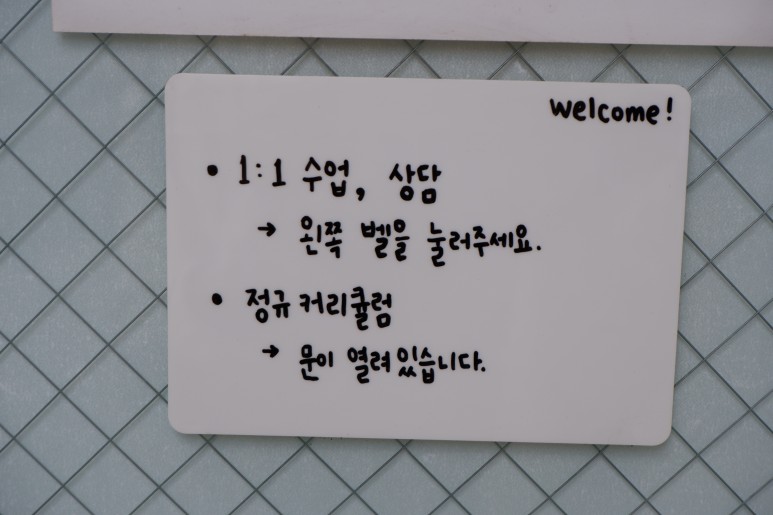 welcome!
• 1:1 수업, 상담
→ 왼쪽 벨을 눌러주세요.
• 정규 커리큘럼
→ 문이 열려있습니다.